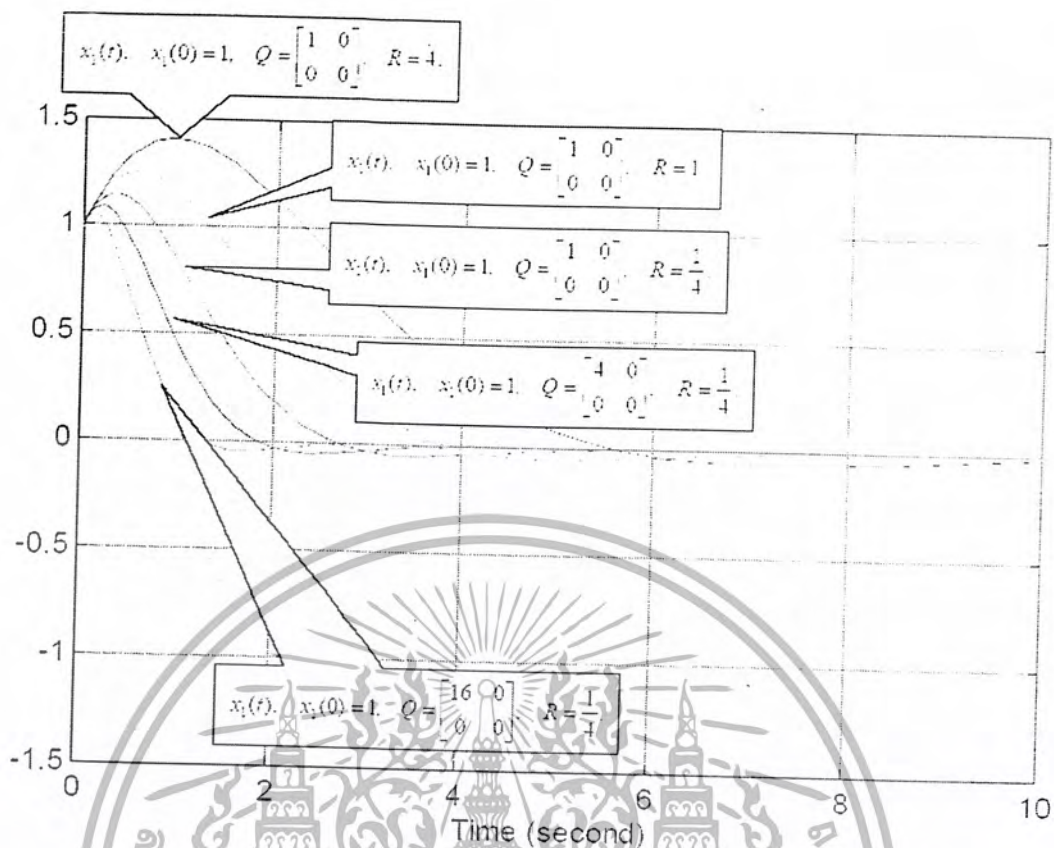 x₁(t). x₁(0) = 1, Q = [1 0; 0 0], R = 4.
x₁(t). x₁(0) = 1. Q = [1 0; 0 0]. R = 1
x₁(t). x₁(0) = 1. Q = [1 0; 0 0]. R = 1/4
x₁(t). x₁(0) = 1. Q = [4 0; 0 0]. R = 1/4
x₁(t). x₁(0) = 1. Q = [16 0; 0 0]. R = 1/4
1.5
1
0.5
0
-0.5
-1
-1.5
0 2 4 6 8 10
Time (second)